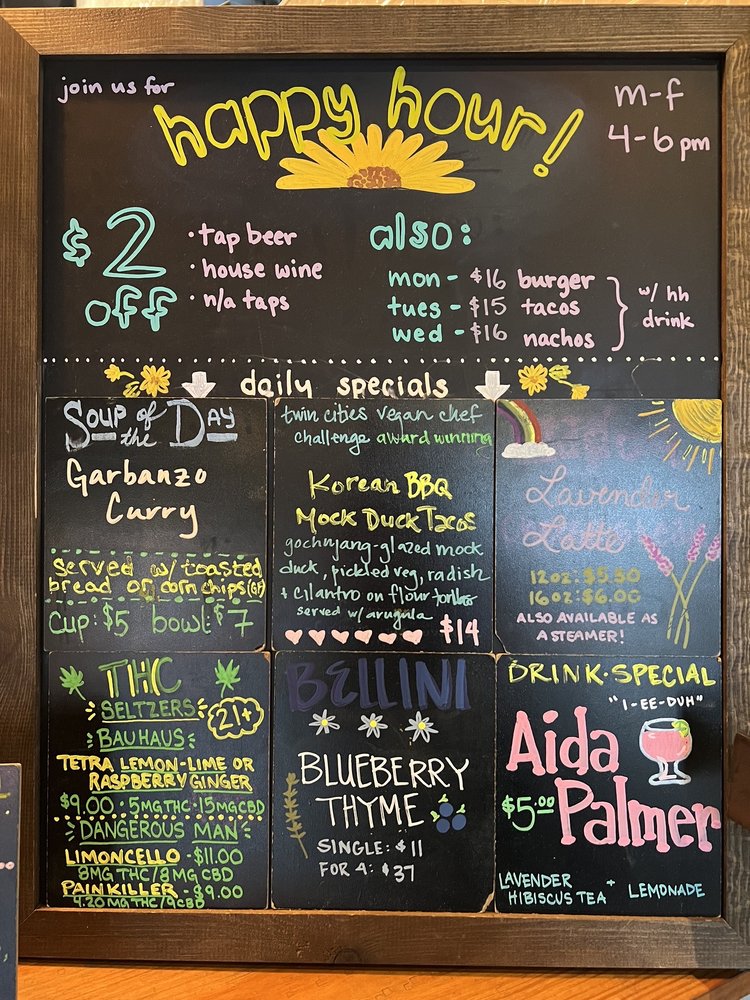 join us for
happy hour!
m-f
4-6pm
$2
off
• tap beer
• house wine
• n/a taps
also:
mon - $16 burger
tues - $15 tacos
wed - $16 nachos
w/ hh
drink
daily specials
Soup of
the Day
Garbanzo
Curry
served w/ toasted
bread or corn chips (GF)
Cup: $5 bowl: $7
twin cities vegan chef
challenge award winning
Korean BBQ
Mock Duck Tacos
gochujang-glazed mock
duck, pickled veg, radish
+ cilantro on flour tortillas
served w/ arugula
$14
Lavender
Latte
12oz: $5.50
16oz: $6.00
ALSO AVAILABLE AS
A STEAMER!
THC
SELTZERS
21+
BAUHAUS
TETRA LEMON-LIME OR
RASPBERRY GINGER
$9.00 • 5MG THC • 15MG CBD
DANGEROUS MAN
LIMONCELLO - $11.00
8MG THC/8MG CBD
PAINKILLER - $9.00
4.20 MG THC/9CBD
BELLINI
BLUEBERRY
THYME
SINGLE: $11
FOR 4: $37
DRINK • SPECIAL
"I-EE-DUH"
Aida
Palmer
$5.00
LAVENDER
HIBISCUS TEA + LEMONADE